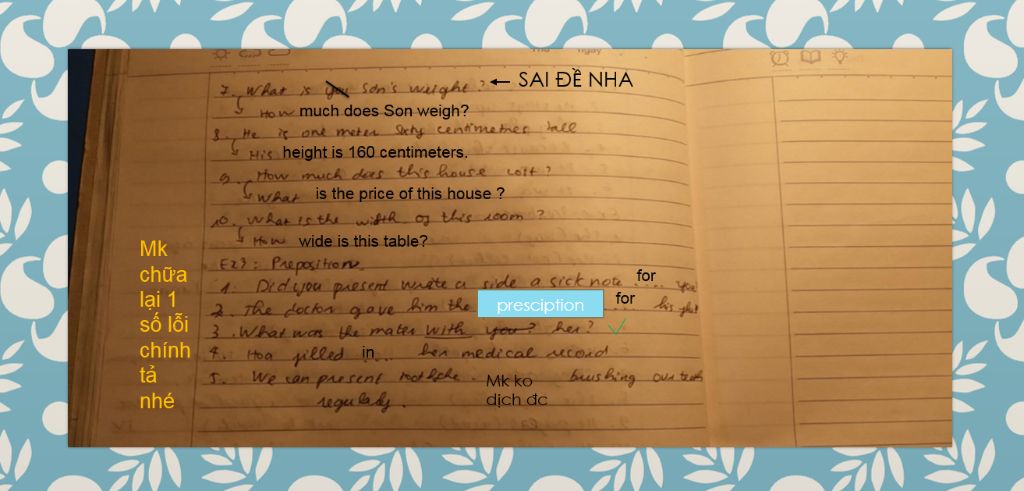 Thứ ngày
7. What is you Son's weight? ← SAI ĐỀ NHA
How much does Son weigh?
8. He is one meter sixty centimetres tall
His height is 160 centimeters.
9. How much does this house cost?
What is the price of this house ?
10. What is the width of this room ?
How wide is this table?
Ex3: Preposition.
1. Did you present write a side a sick note .... for you
2. The doctor gave him the presciption .... for his
3. What was the mater with you? her?
4. Hoa filled in... her medical record
5. We can present . Mk ko brushing our teeth
dịch đc
regulady.
Mk
chữa
lại 1
số lỗi
chính
tả
nhé